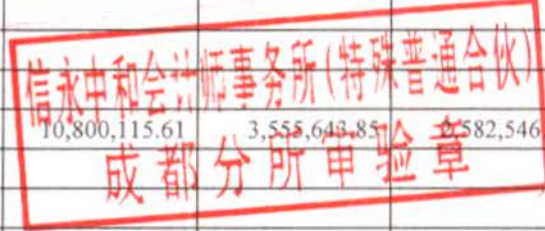 信永中和会计师事务所(特殊普通合伙)
10,800,115.61 3,555,643.85 582,546
成都分所审验章